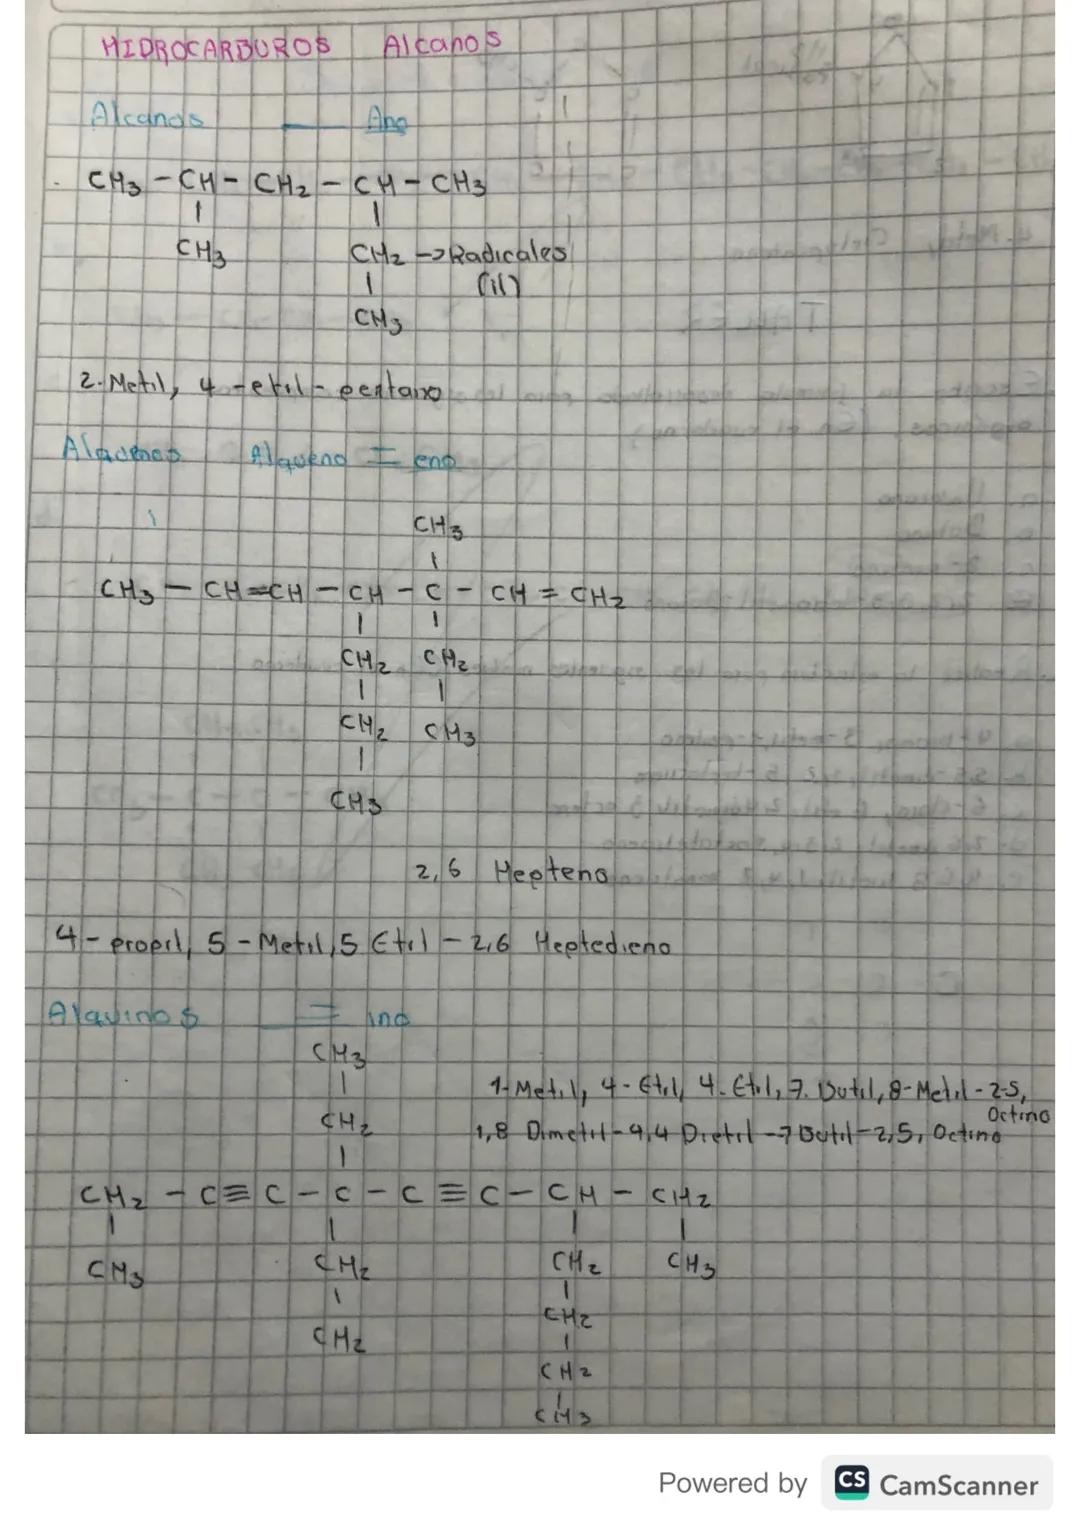 HIDROCARBUROS Alcanos
Alcanos — Ano
CH3 - CH - CH2 - CH - CH3
CH3 CH2 -> Radicales
(il)
CH3
2-Metil, 4-etil-pentano
Alquenos Alqueno = eno
CH3
CH3 - CH=CH - CH - C - CH = CH2
CH2 CH2
CH2 CH3
CH3
2,6 Hepteno
4-propil, 5-Metil, 5 Etil - 2,6 Heptedieno
Alquinos ≡ ino
CH3
1-Metil, 4-Etil, 4-Etil, 7-Butil, 8-Metil-2-5, Octino
CH2
1,8 Dimetil-4,4 Dietil-7 Butil-2,5, Octino
CH2 - C≡C - C - C≡C - CH - CH2
CH3 CH2 CH2 CH3
CH2
CH2
CH2
CH3
Powered by CS CamScanner